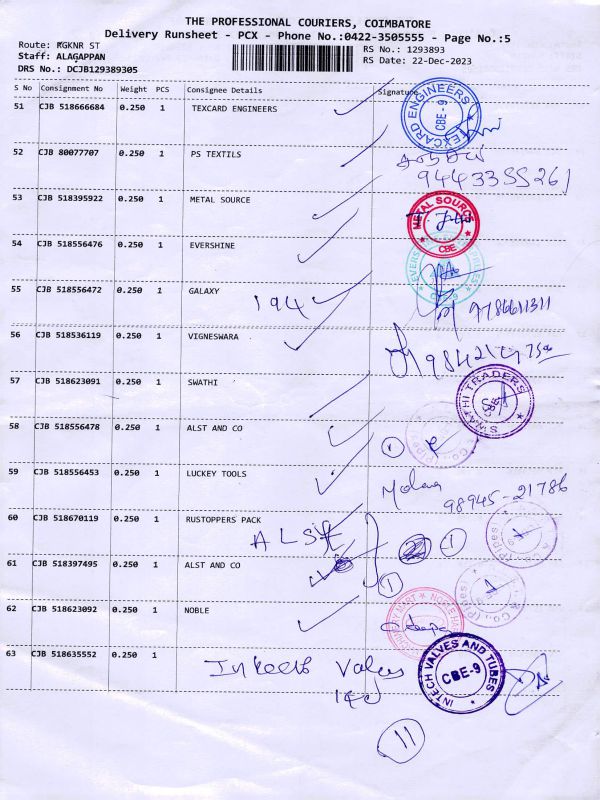 THE PROFESSIONAL COURIERS, COIMBATORE
Delivery Runsheet - PCX - Phone No.:0422-3505555 - Page No.:5
Route: KGKNR ST
RS No.: 1293893
Staff: ALAGAPPAN
RS Date: 22-Dec-2023
DRS No.: DCJB129389305
S No Consignment No Weight PCS Consignee Details Signature
51 CJB 518666684 0.250 1 TEXCARD ENGINEERS
TEXCARD ENGINEERS CBE-9
52 CJB 80077707 0.250 1 PS TEXTILS
9443355261
53 CJB 518395922 0.250 1 METAL SOURCE
METAL SOURCE CBE
54 CJB 518556476 0.250 1 EVERSHINE
55 CJB 518556472 0.250 1 GALAXY 194
9786611311
56 CJB 518536119 0.250 1 VIGNESWARA
57 CJB 518623091 0.250 1 SWATHI
SWATHI TRADERS CBE
58 CJB 518556478 0.250 1 ALST AND CO
1
59 CJB 518556453 0.250 1 LUCKEY TOOLS
98945-21786
60 CJB 518670119 0.250 1 RUSTOPPERS PACK
ALST
1
61 CJB 518397495 0.250 1 ALST AND CO
1
62 CJB 518623092 0.250 1 NOBLE
63 CJB 518635552 0.250 1
INTECH VALVES AND TUBES CBE-9
11